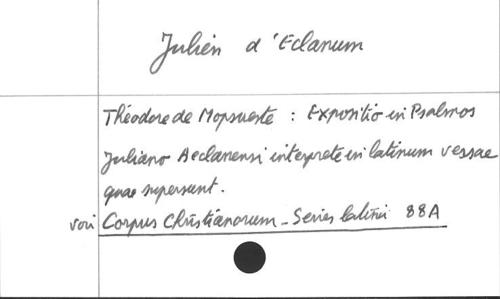 Julien d'Eclanum
Théodore de Mopsueste : Expositio in Psalmos
Juliano Aeclanensi interprete in latinum versae
quae supersunt.
voir Corpus Christianorum - Series latini 88A